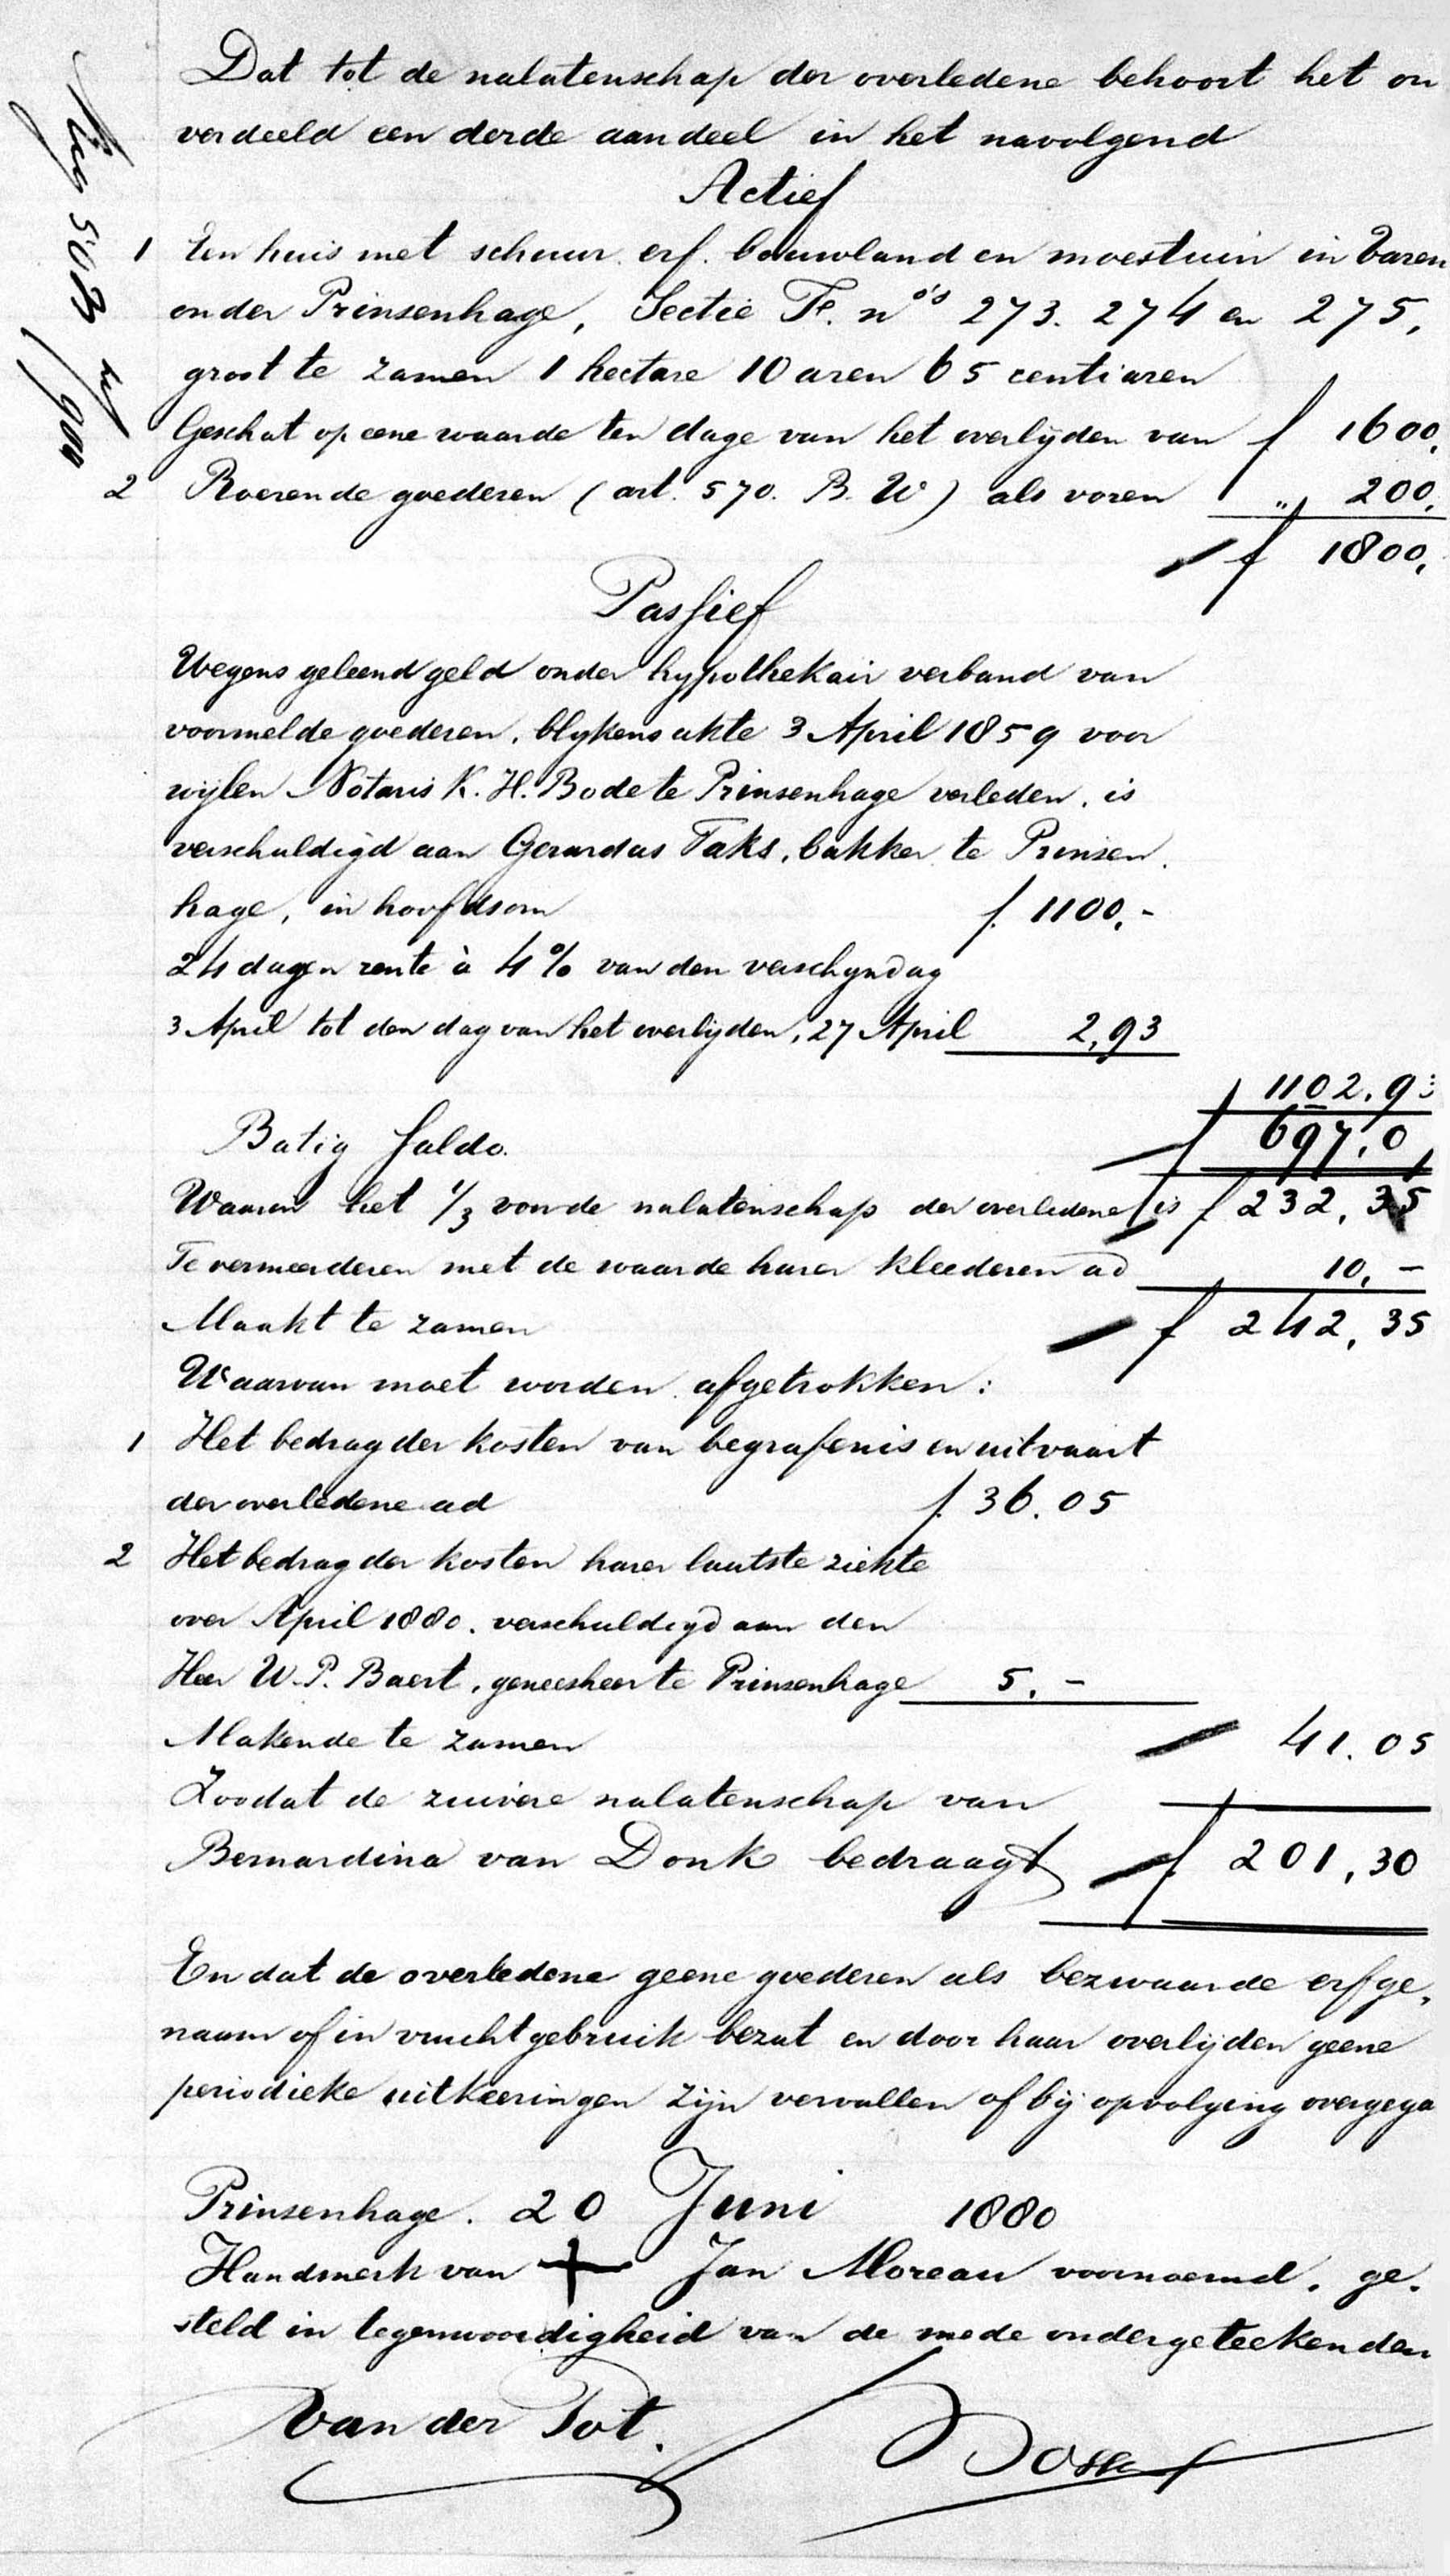 Dat tot de nalatenschap der overledene behoort het on
verdeeld een derde aandeel in het navolgend
Actief
1 Een huis met schuur. erf. bouwland en moestuin in Baren
onder Prinsenhage, Sectie F. nos 273. 274 en 275,
groot te zamen 1 hectare 10 aren 65 centiaren
Geschat op eene waarde ten dage van het overlijden van f 1600,
2 Roerende goederen (art. 570. B. W) als voren „ 200,
f 1800,
Passief
Wegens geleend geld onder hypothekair verband van
voormelde goederen, blykens akte 3 April 1859 voor
wijlen Notaris K. H. Bode te Prinsenhage verleden, is
verschuldigd aan Gerardus Taks, bakker te Prinsen
hage, in hoofdsom f. 1100,-
24 dagen rente à 4% van den verschyndag
3 April tot den dag van het overlijden, 27 April 2,93
1102,93
Batig Saldo. f 697,0
Waarin het 1/3 van de nalatenschap der overledene is f 232,35
Te vermeerderen met de waarde harer kleederen ad 10,-
Maakt te zamen f 242,35
Waarvan moet worden afgetrokken:
1 Het bedrag der kosten van begrafenis en uitvaart
der overledene ad f. 36.05
2 Het bedrag der kosten harer laatste ziekte
over April 1880. verschuldigd aan den
Heer W. P. Baert, geneesheer te Prinsenhage 5.-
Makende te zamen 41.05
Zoodat de zuivere nalatenschap van
Bernardina van Donk bedraagt f. 201,30
En dat de overledene geene goederen als bezwaarde erfge,
naam of in vruchtgebruik bezat en door haar overlijden geene
periodieke uitkeeringen zijn vervallen of bij opvolging overgega
Prinsenhage. 20 Juni 1880
Handmerk van + Jan Moreau voornoemd, ge,
steld in tegenwoordigheid van de mede ondergeteekenden
Van der Pot.